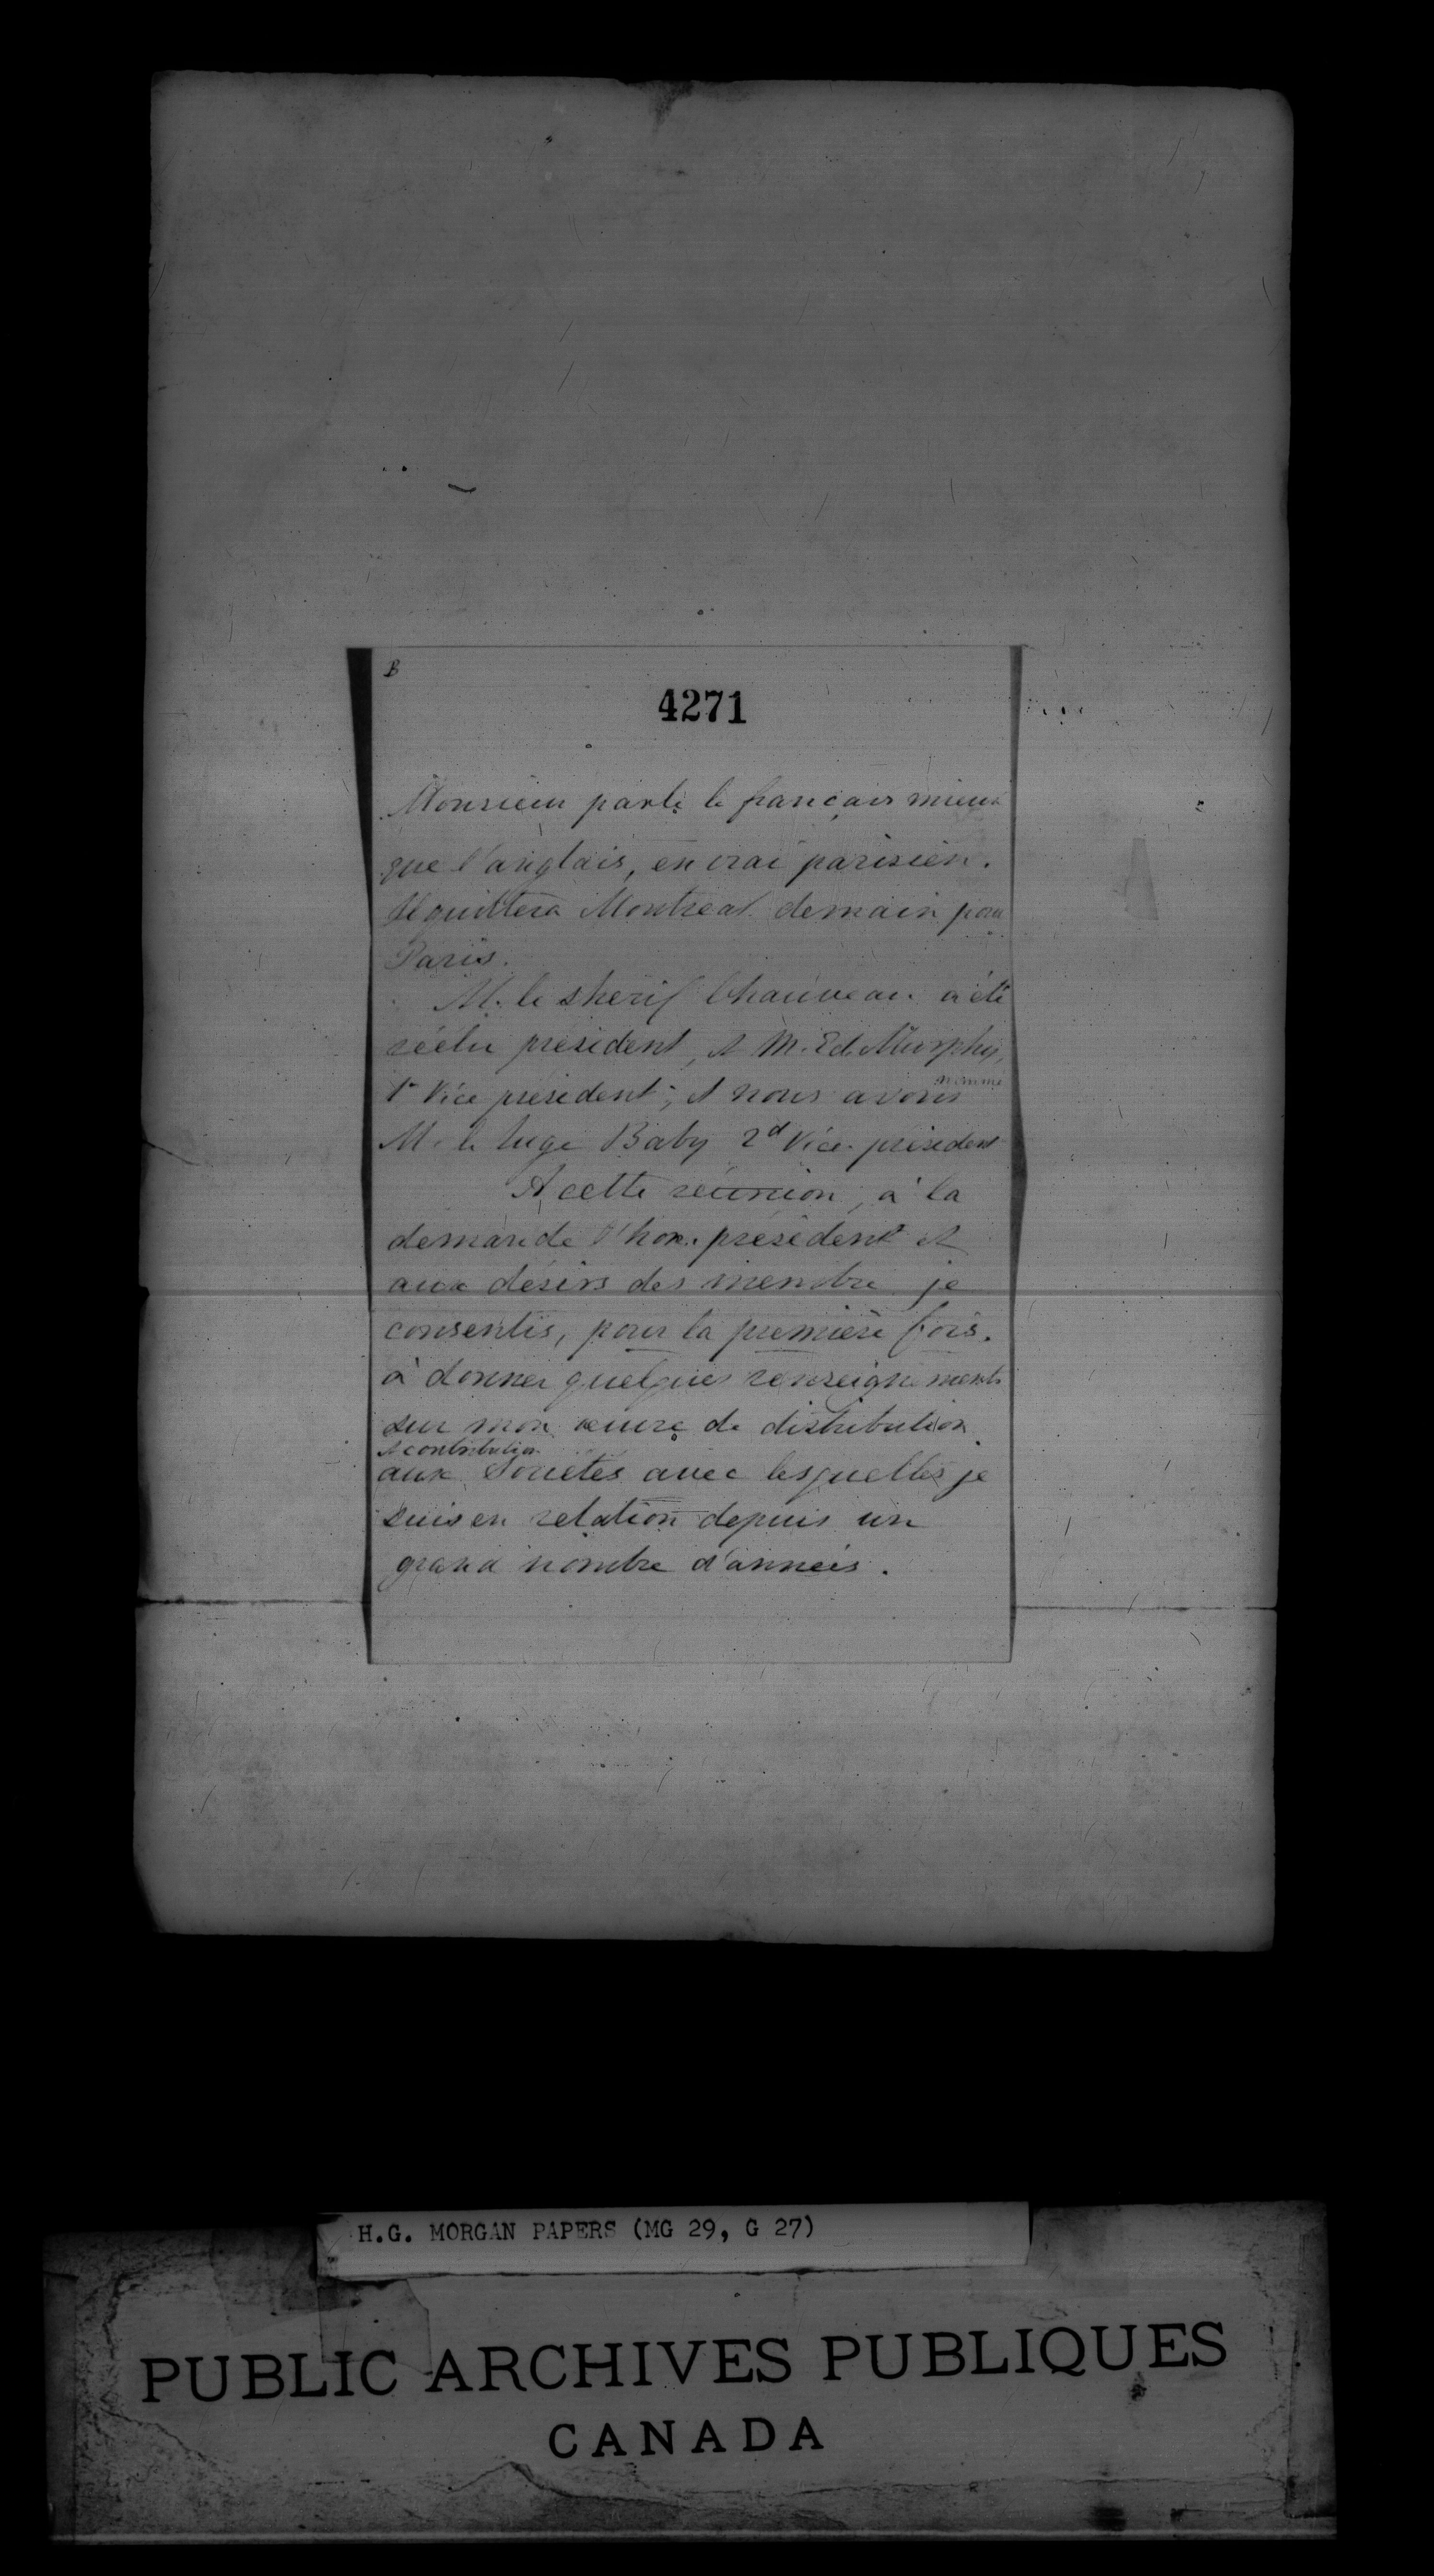 B
4271
Monsieur parle le français mieux
que l'anglais, en vrai parisien.
Il quittera Montreal demain pour
Paris.
M. le sherif Chauveau a été
réélu président, et M. Ed. Murphy,
1r Vice président; et nous avons
nommé
M. le Juge Baby 2d Vice-président
A cette réunion, à la
demande l'hon. président et
aux désirs des membre je
consentis, pour la première fois.
à donner quelques renseignements
sur mon œuvre de distribution
et contribution
aux Sociétés avec lesquelles je
suis en relation depuis un
grand nombre d'années.
H.G. MORGAN PAPERS (MG 29, G 27)
PUBLIC ARCHIVES PUBLIQUES
CANADA